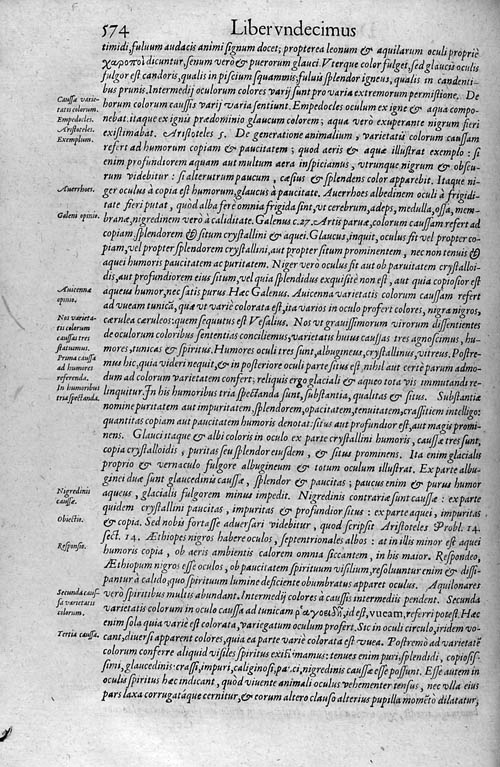 574 Liber vndecimus
timidi, fuluum audacis animi signum docet; propterea leonum & aquilarum oculi propriè
χαροποὶ dicuntur, senum verò & puerorum glauci. Vterque color fulget, sed glaucis oculis
fulgor est candoris, qualis in piscium squammis; fuluis splendor igneus, qualis in candenti-
bus prunis. Intermedij oculorum colores varij sunt pro varia extremorum permistione. De
Caussæ varie-
tatis colorum.
horum colorum caussis varij varia sentiunt. Empedocles oculum ex igne & aqua compo-
Empedocles.
nebat. itaque ex ignis prædominio glaucum colorem; aqua verò exuperante nigrum fieri
Aristoteles.
existimabat. Aristoteles 5. De generatione animalium, varietatis colorum caussam
Exemplum.
refert ad humorum copiam & paucitatem; quod aeris & aquæ illustrat exemplo: si
enim profundiorem aquam aut multum aera inspiciamus, vtrunque nigrum & obscu-
rum videbitur: si alterutrum paucum, cæsius & splendens color apparebit. Itaque ni-
Auerrhoes.
ger oculus à copia est humorum, glaucus à paucitate. Auerrhoes albedinem oculi à frigidi-
tate fieri putat, quod alba ferè omnia frigida sint, vt cerebrum, adeps, medulla, ossa, mem-
Galeni opinio.
branæ, nigredinem verò à caliditate. Galenus c. 27. Artis paruæ, colorum caussam refert ad
copiam splendorem & situm crystallini & aquei. Glaucus, inquit, oculus fit vel propter co-
piam, vel propter splendorem crystallini, aut propter situm prominentem, nec non tenuis &
aquei humoris paucitatem ac puritatem. Niger verò oculus fit aut ob paruitatem crystalloi-
dis, aut profundiorem eius situm, vel quia splendidus exquisitè non est, aut quia copiosior est
Auicennæ
opinio.
aqueus humor, nec satis purus Hæc Galenus. Auicenna varietatis colorum caussam refert
ad vueam tunicã, quæ vt variè colorata est, ita varios in oculo profert colores, nigra nigros,
cærulea cæruleos: quem sequutus est Vesalius. Nos vt grauissimorum virorum dissentientes
Nos varieta-
tis colorum
caussas tres
statuimus.
de oculorum coloribus sententias conciliemus, varietatis huius caussas tres agnoscimus, hu-
mores, tunicas & spiritus. Humores oculi tres sunt, albugineus, crystallinus, vitreus. Postre-
Prima caussa
ad humores
referenda.
mus hic, quia videri nequit, & in posteriore oculi parte situs est, nihil aut certè parum admo-
dum ad colorum varietatem confert; reliquis ergo glaciali & aqueo tota vis immutandi re-
In humoribus
tria spectanda.
linquitur. In his humoribus tria spectanda sunt, substantia, qualitas & situs. Substantiæ
nomine puritatem aut impuritatem, splendorem, opacitatem, tenuitatem, crassitiem intelligo:
quantitas copiam aut paucitatem humoris denotat: situs aut profundior est, aut magis promi-
nens. Glauci itaque & albi coloris in oculo ex parte crystallini humoris, caussæ tres sunt,
copia crystalloidis, puritas seu splendor eiusdem, & situs prominens. Ita enim glacialis
proprio & vernaculo fulgore albugineum & totum oculum illustrat. Ex parte albu-
ginei duæ sunt glaucedinis caussæ, splendor & paucitas; paucus enim & purus humor
Nigredinis
caussæ.
aqueus, glacialis fulgorem minus impedit. Nigredinis contrariæ sunt caussæ: ex parte
quidem crystallini paucitas, impuritas & profundior situs: ex parte aquei, impuritas
Obiectio.
& copia. Sed nobis fortasse aduersari videbitur, quod scripsit Aristoteles Probl. 14.
sect. 14. Æthiopes nigros habere oculos, septentrionales albos: at in illis minor est aquei
Responsio.
humoris copia, ob aeris ambientis calorem omnia siccantem, in his maior. Respondeo,
Æthiopum nigros esse oculos, ob paucitatem spirituum visilium, resoluuntur enim & dissi-
pantur à calido, quo spirituum lumine deficiente obumbratus apparet oculus. Aquilonares
Secunda caus-
sa varietatis
colorum.
verò spiritibus multis abundant. Intermedij colores à caussis intermedijs pendent. Secunda
varietatis colorum in oculo caussa ad tunicam ῥαγοειδῆ, id est, vueam, referri potest. Hæc
enim sola quia variè est colorata, variegatum oculum profert. Sic in oculi circulo, iridem vo-
Tertia caussa.
cant, diuersi apparent colores, quia ea parte variè colorata est vuea. Postremò ad varietatē
colorum conferre aliquid visiles spiritus existimamus: tenues enim puri, splendidi, copiosis-
simi, glaucedinis: crassi, impuri, caliginosi, pauci, nigredinis caussæ esse possunt. Esse autem in
oculis spiritus hæc indicant, quod viuente animali oculus vehementer tensus, nec vlla eius
pars laxa corrugatáque cernitur, & eorum altero clauso alterius pupilla momẽto dilatatur,